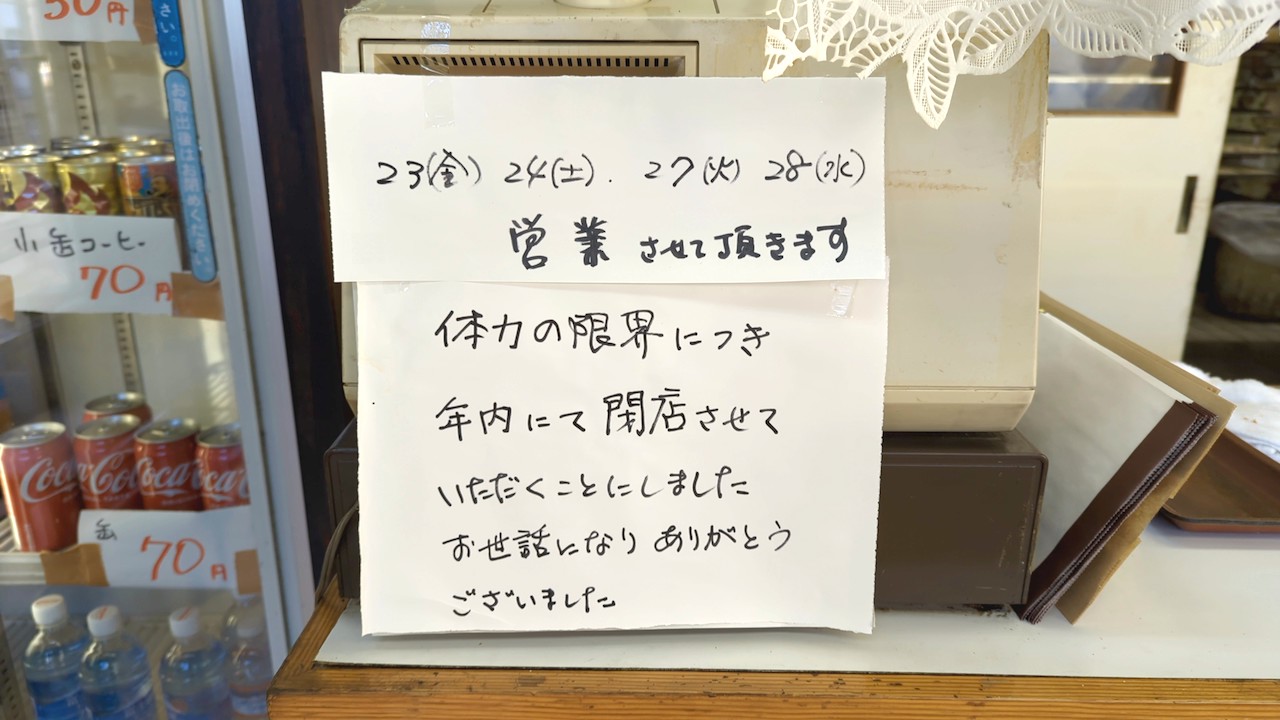 50円
さい。
お取出後はお閉めください
小缶コーヒー
70円
Coca-Cola
Coca
Coca
Coca
缶
70円
23(金) 24(土). 27(火) 28(水)
営業させて頂きます
体力の限界につき
年内にて閉店させて
いただくことにしました
お世話になり ありがとう
ございました